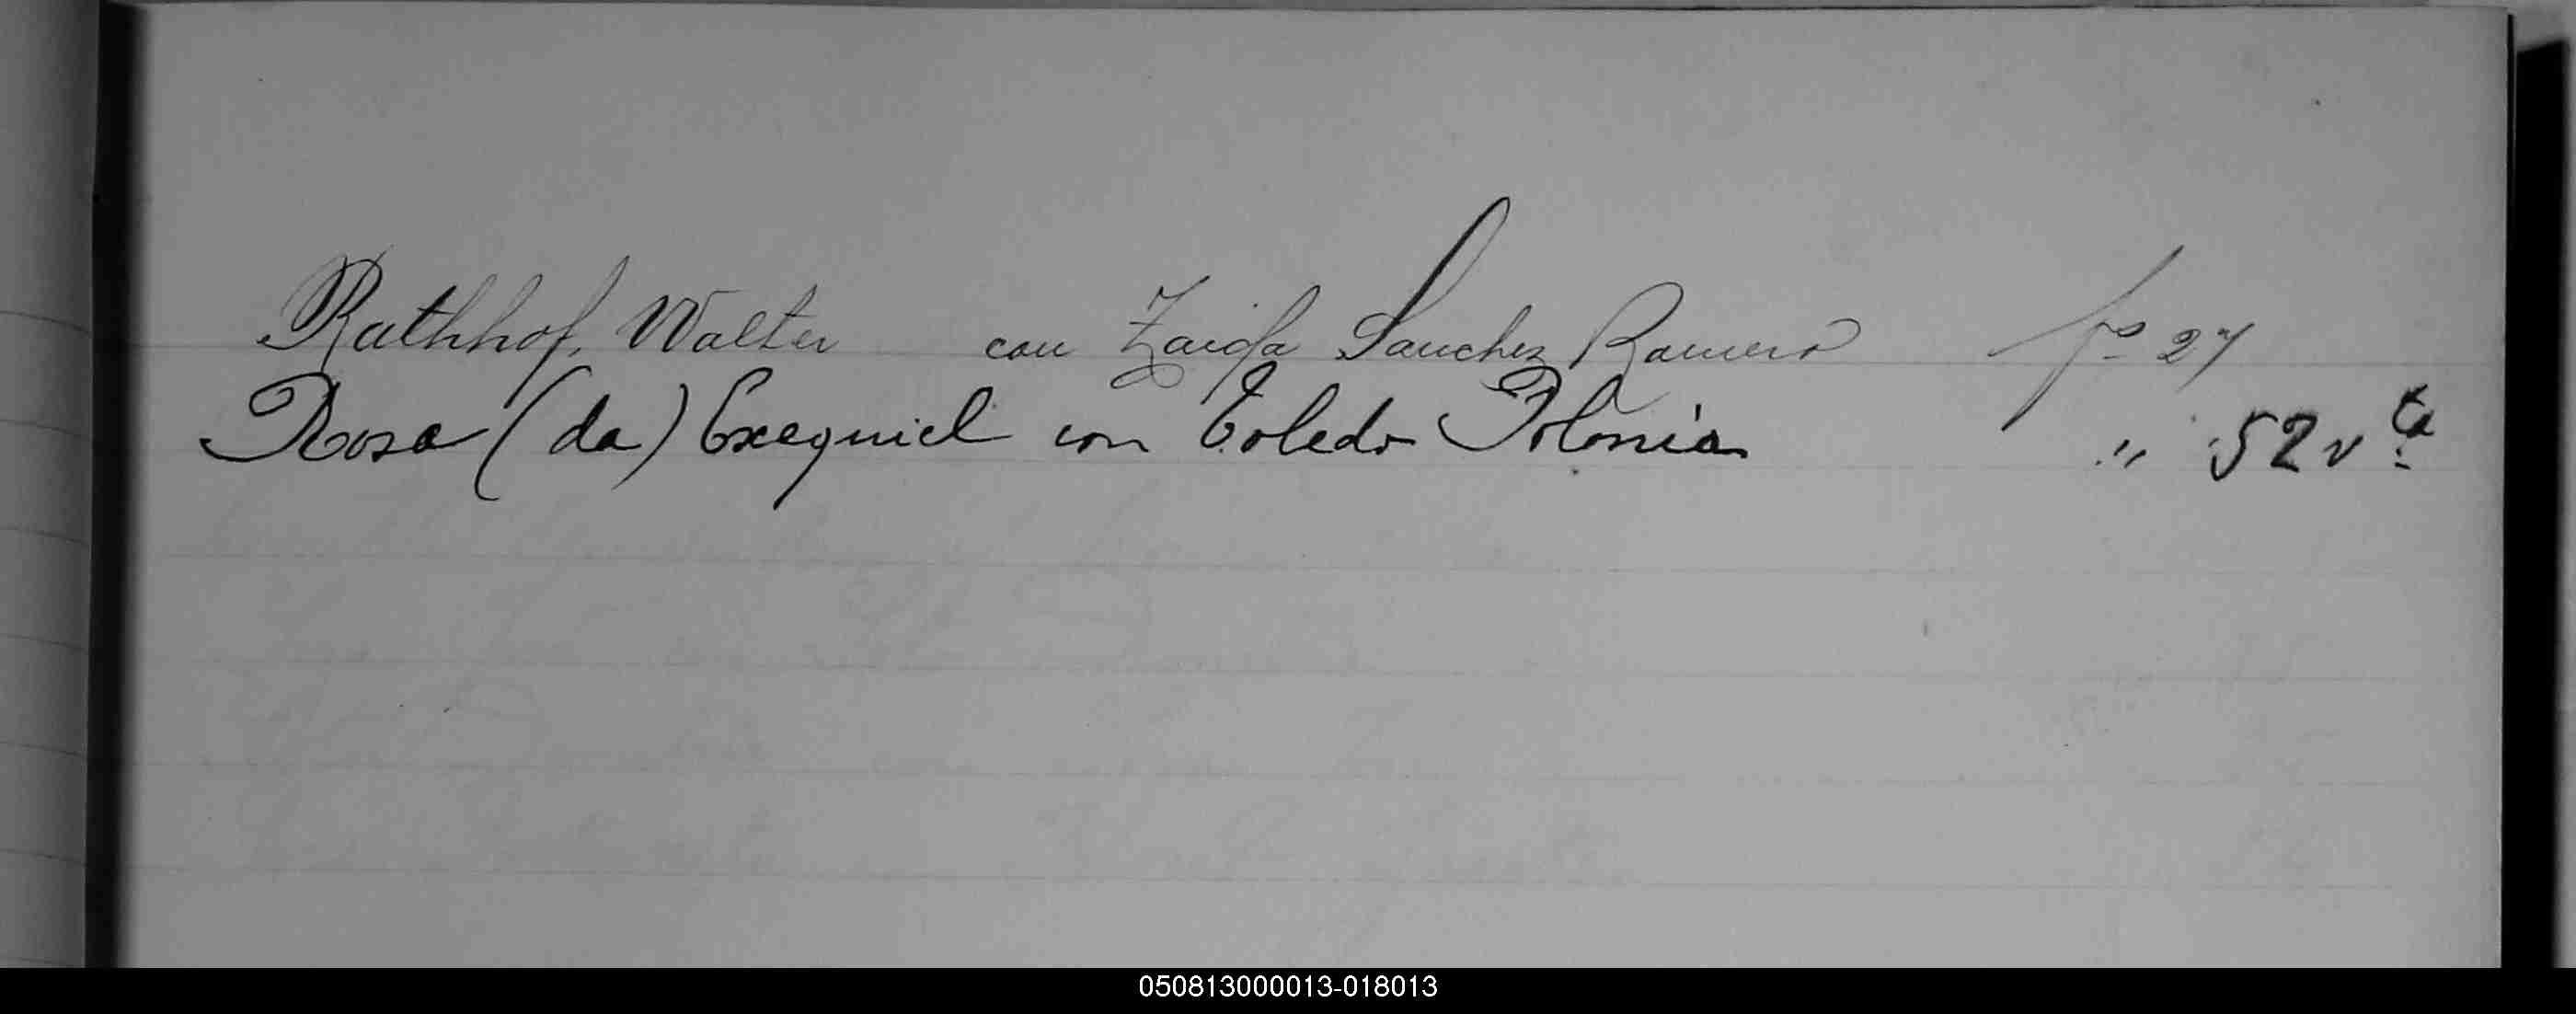 Rathhof, Walter con Zaida Sanchez Romero fº 27
Rosa (da) Exequiel con Toledo Polonia " 52 vta
050813000013-018013